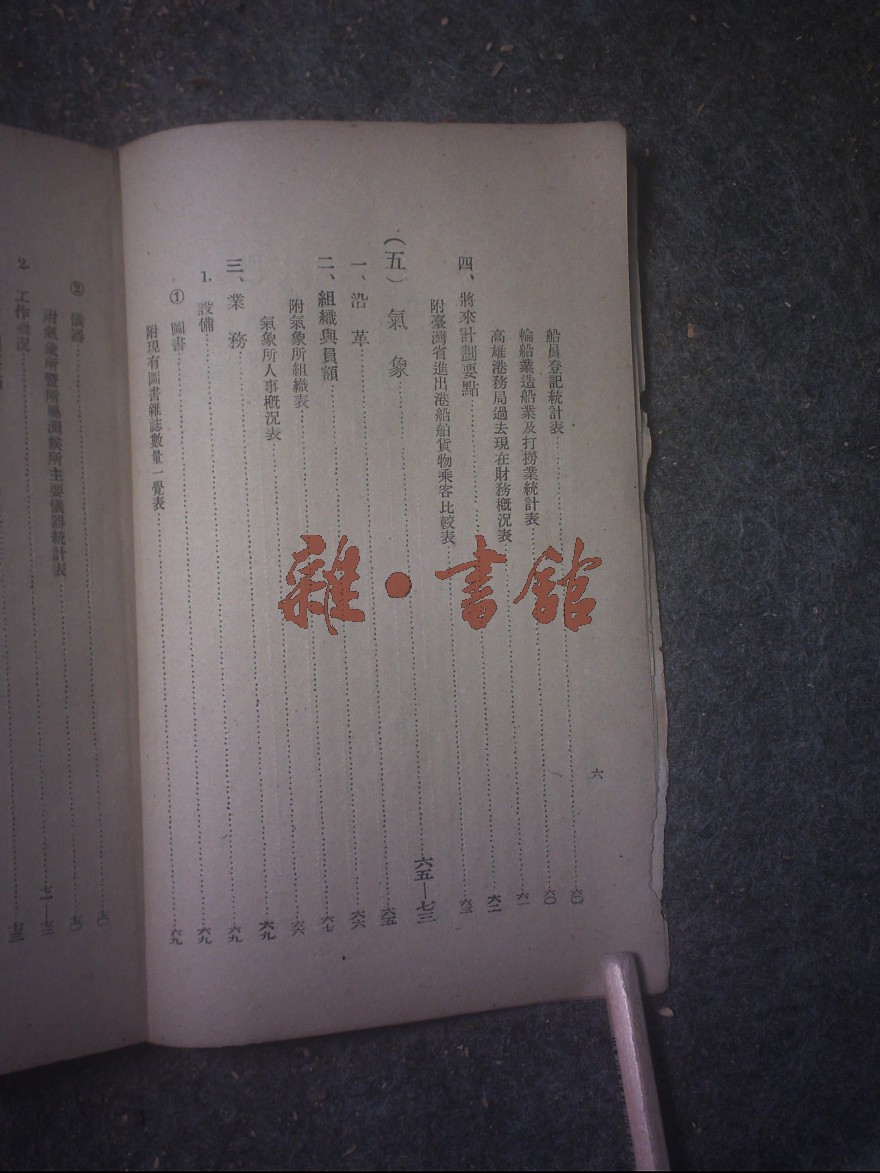 六
船員登記統計表……六〇
輪船業造船業及打撈業統計表……六〇
高雄港務局過去現在財務概況表……六一
四、將來計劃要點……六二
附臺灣省進出港船舶貨物乘客比較表……六三
（五）氣象……六五—七三
一、沿革……六五
二、組織與員額……六六
附氣象所組織表……六七
氣象所人事概況表……六八
三、業務……六九
1. 設備……六九
① 圖書……六九
附現有圖書雜誌數量一覽表……六九
② 儀器……七〇
附氣象所暨所屬測候所主要儀器統計表……七〇
2. 工作概況
雜·書館